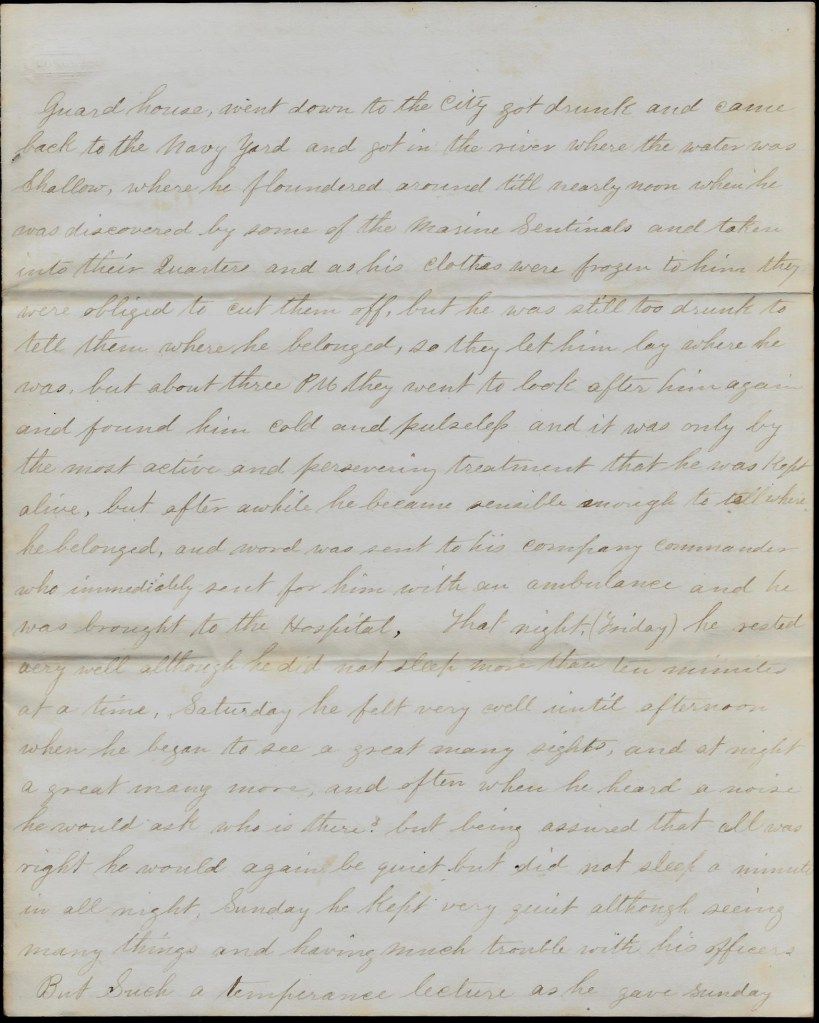 Guard house, went down to the City got drunk and came
back to the Navy Yard and got in the river where the water was
Shallow, where he floundered around till nearly noon when he
was discovered by some of the Marine Sentinals and taken
into their Quarters and as his clothes were frozen to him they
were obliged to cut them off, but he was still too drunk to
tell them where he belonged, so they let him lay where he
was, but about three P M they went to look after him again
and found him cold and pulseless and it was only by
the most active and persevering treatment that he was Kept
alive, but after awhile he became sensible enough to tell where
he belonged, and word was sent to his company commander
who immediately sent for him with an ambulance and he
was brought to the Hospital, That night, (Friday) he rested
very well although he did not sleep more than ten minutes
at a time, Saturday he felt very well until afternoon
when he began to see a great many sights, and at night
a great many more, and often when he heard a noise
he would ask who is there? but being assured that all was
right he would again be quiet but did not sleep a minute
in all night, Sunday he Kept very quiet although seeing
many things and having much trouble with his officers
But Such a temperance lecture as he gave Sunday